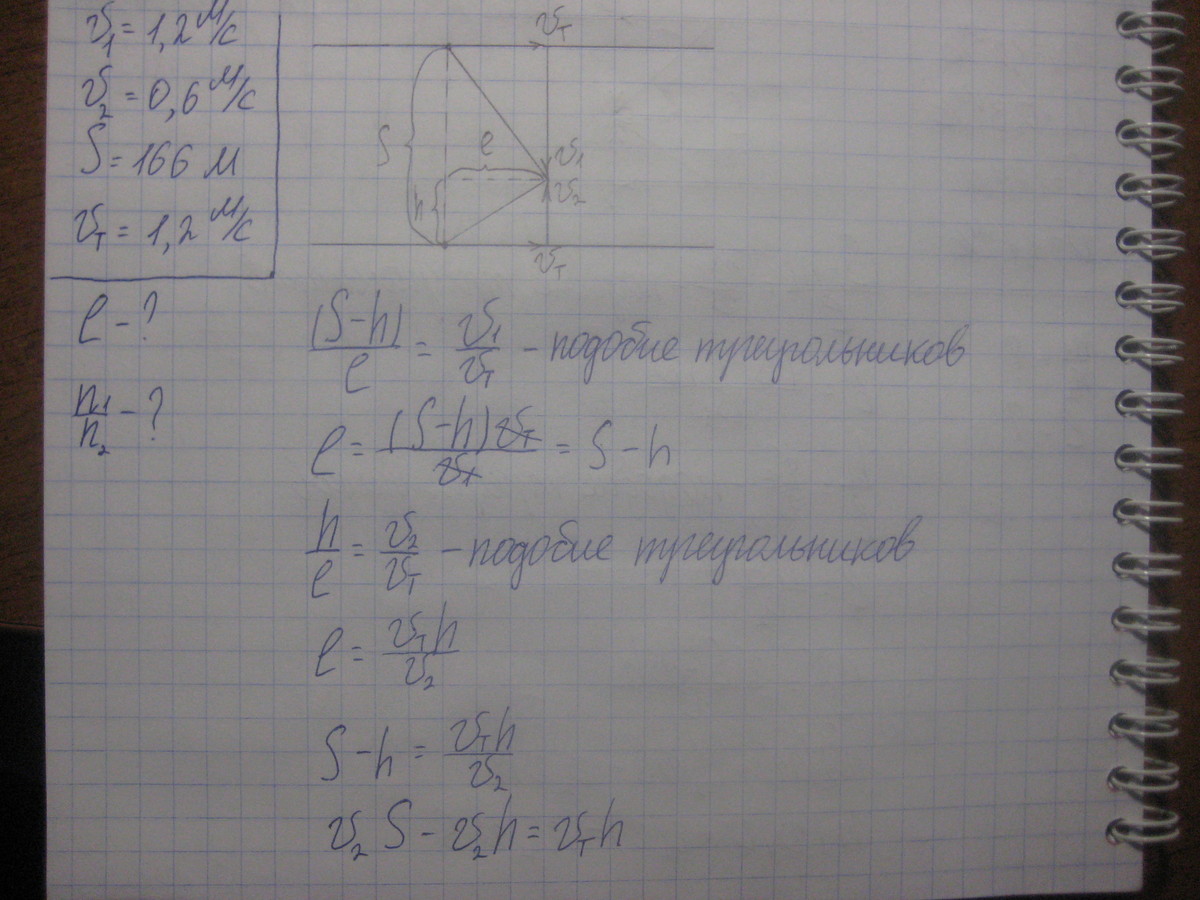 v₁ = 1,2 м/с
v₂ = 0,6 м/с
S = 166 м
vт = 1,2 м/с
ℓ - ?
n₁/n₂ - ?
vт
S
ℓ
v₁
v₂
h
vт
(S-h)/ℓ = v₁/vт - подобие треугольников
ℓ = (S-h)vт/v₁ = S - h
h/ℓ = v₂/vт - подобие треугольников
ℓ = vтh/v₂
S - h = vтh/v₂
v₂S - v₂h = vтh